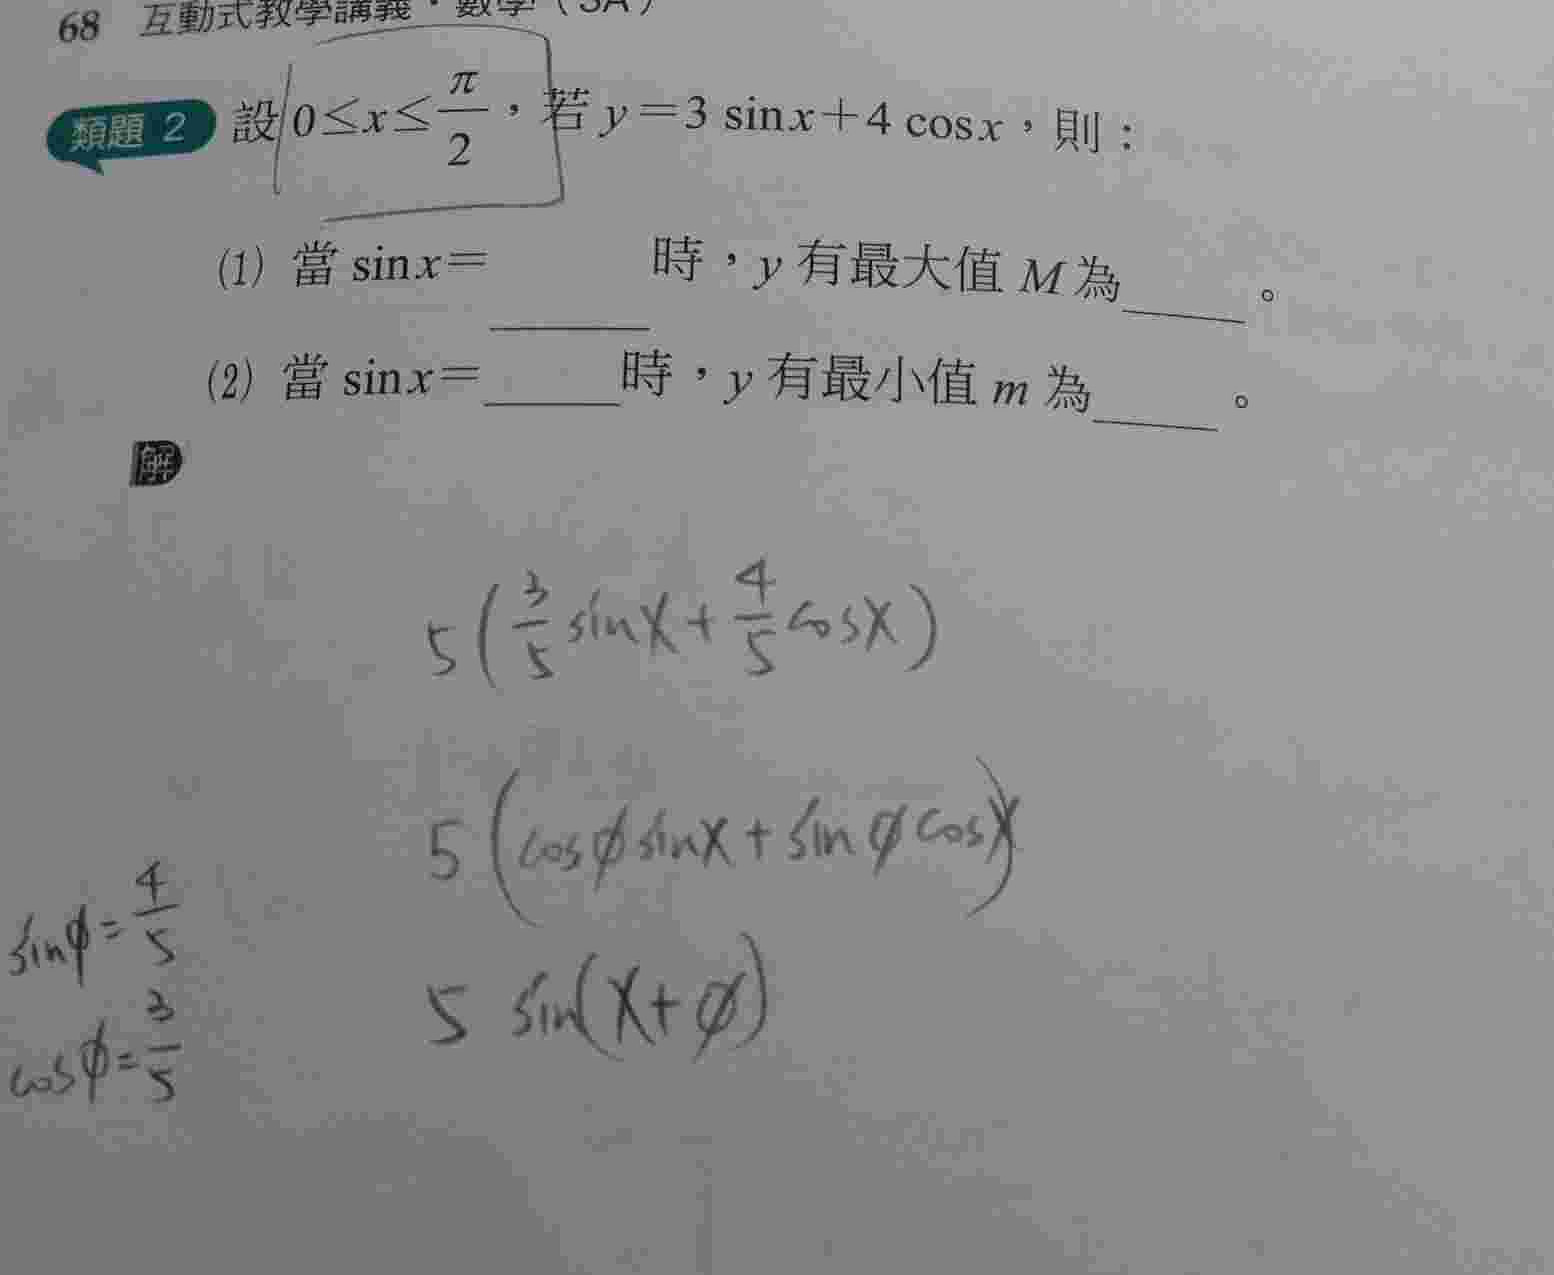 68 互動式教學講義．數學（3A）
類題 2 設 0≤x≤π/2，若 y=3 sinx+4 cosx，則：
(1) 當 sinx=____時，y 有最大值 M 為____。
(2) 當 sinx=____時，y 有最小值 m 為____。
解
5(3/5 sinx+4/5 cosx)
5(cosϕ sinx+sinϕ cosx)
sinϕ=4/5
5 sin(x+ϕ)
cosϕ=3/5